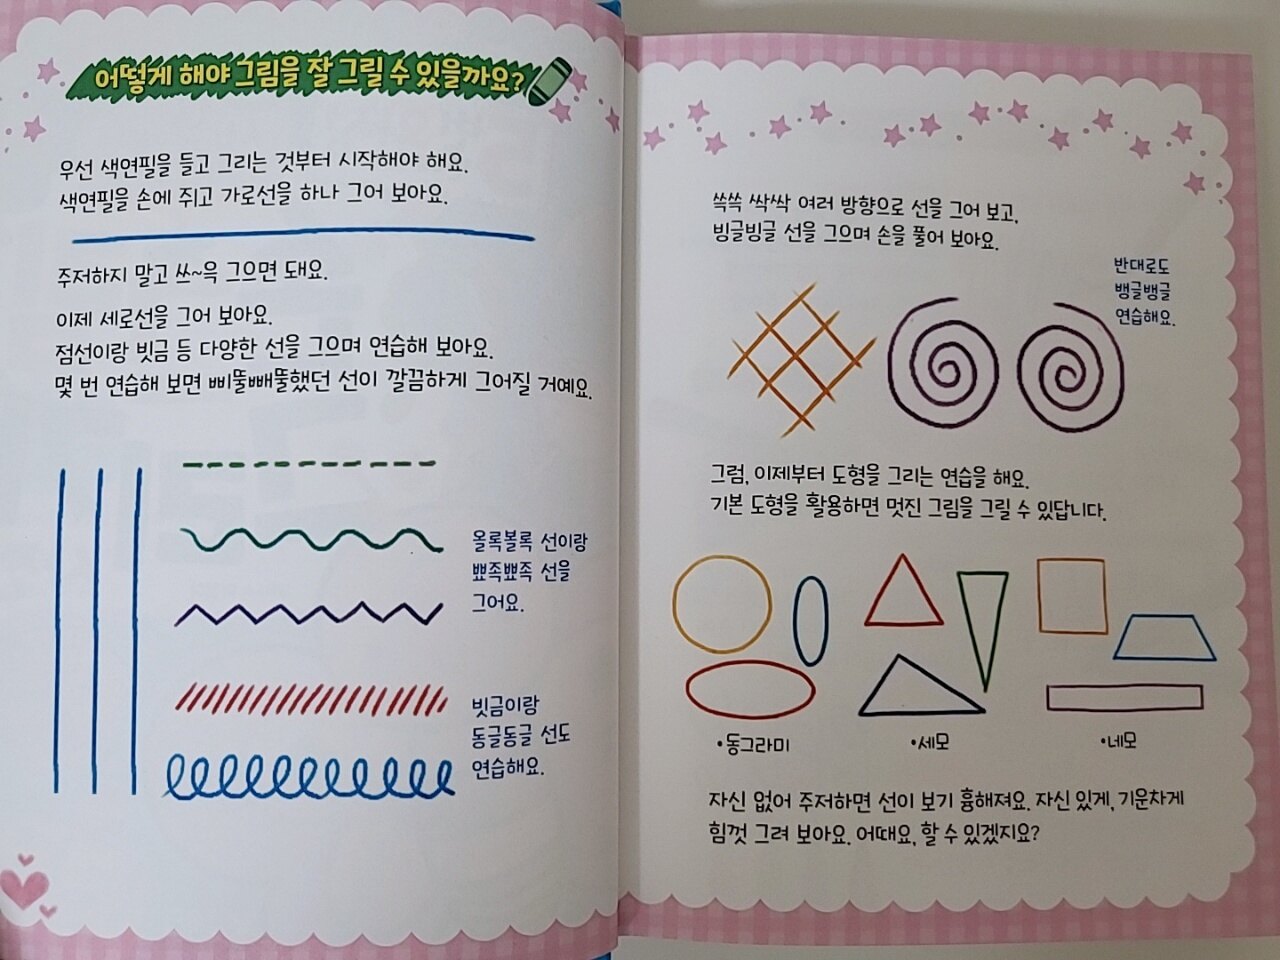 어떻게 해야 그림을 잘 그릴 수 있을까요?
우선 색연필을 들고 그리는 것부터 시작해야 해요.
색연필을 손에 쥐고 가로선을 하나 그어 보아요.
주저하지 말고 쓰~윽 그으면 돼요.
이제 세로선을 그어 보아요.
점선이랑 빗금 등 다양한 선을 그으며 연습해 보아요.
몇 번 연습해 보면 삐뚤빼뚤했던 선이 깔끔하게 그어질 거예요.
올록볼록 선이랑
뾰족뾰족 선을
그어요.
빗금이랑
동글동글 선도
연습해요.
쓱쓱 싹싹 여러 방향으로 선을 그어 보고,
빙글빙글 선을 그으며 손을 풀어 보아요.
반대로도
뱅글뱅글
연습해요.
그럼, 이제부터 도형을 그리는 연습을 해요.
기본 도형을 활용하면 멋진 그림을 그릴 수 있답니다.
•동그라미
•세모
•네모
자신 없어 주저하면 선이 보기 흉해져요. 자신 있게, 기운차게
힘껏 그려 보아요. 어때요, 할 수 있겠지요?